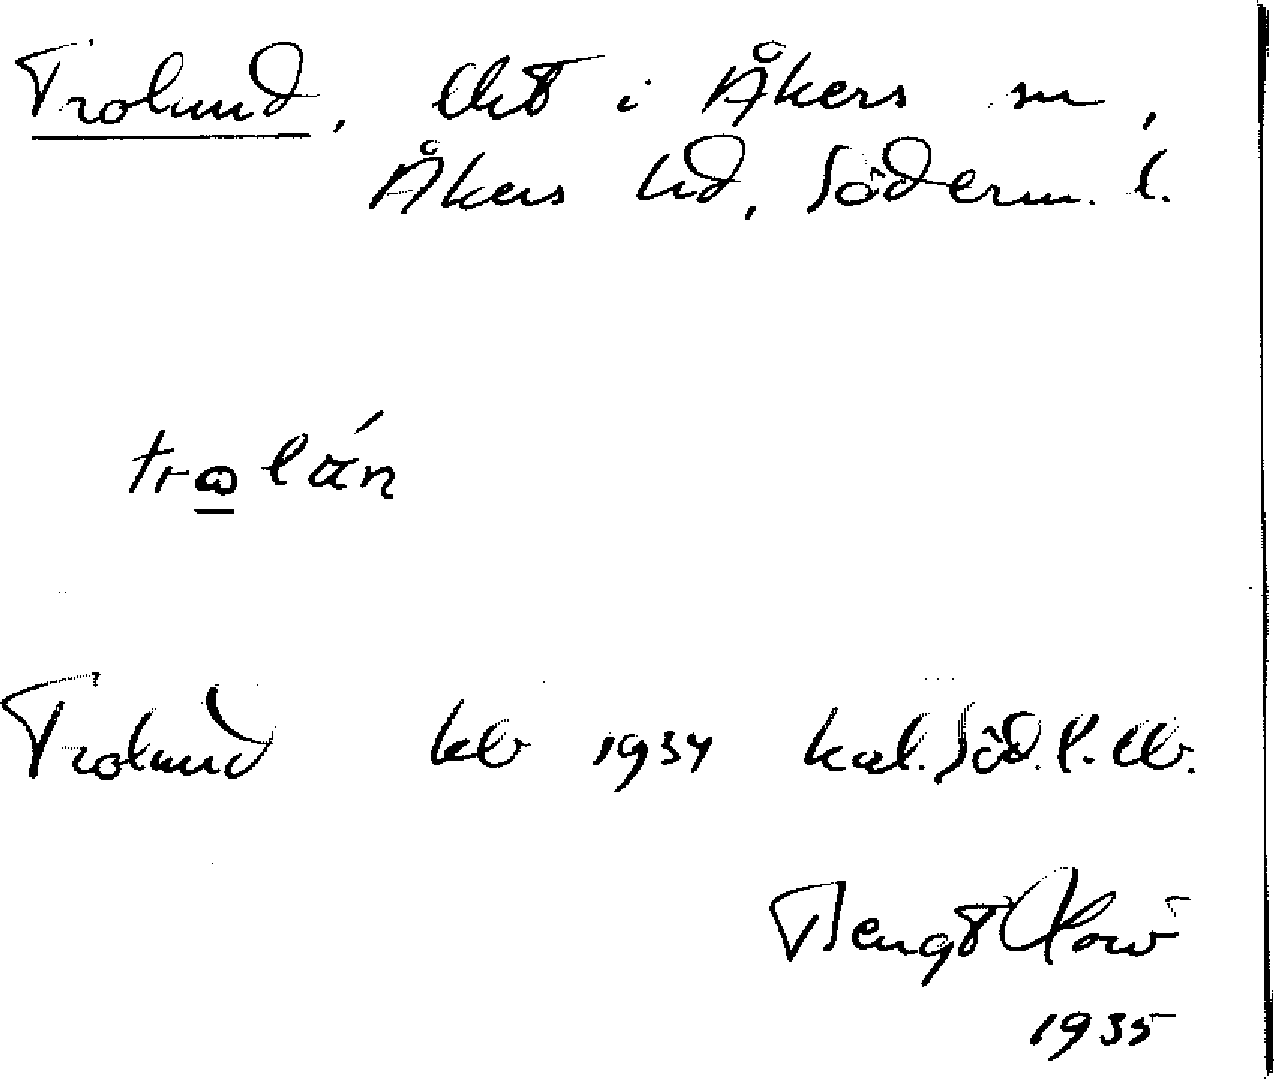 Trolund, Utj i Åkers sn,
Åkers hd, Söderm. l.
trolán
Trolund kb 1934 kal. Söd. l. Ub.
Bengt
1935